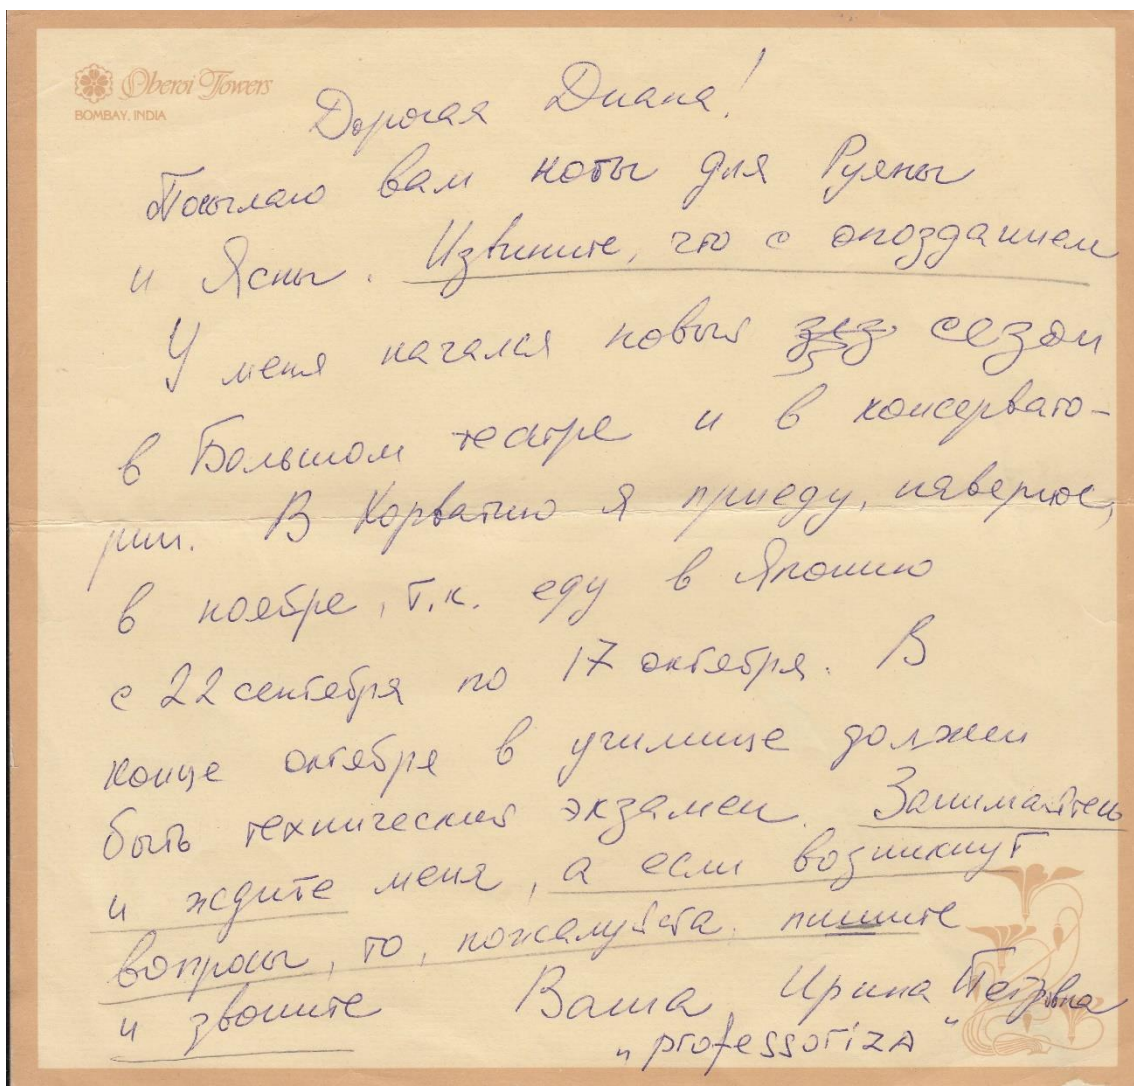 Oberoi Towers
BOMBAY, INDIA
Дорогая Диана!
Посылаю вам ноты для Руяны
и Ясны. Извините, что с опозданием
У меня начался новый сезон
в Большом театре и в консервато-
рии. В Хорватию я приеду, наверное,
в ноябре, т.к. еду в Японию
с 22 сентября по 17 октября. В
конце октября в училище должен
быть технический экзамен. Занимайтесь
и ждите меня, а если возникнут
вопросы, то, пожалуйста, пишите
и звоните Ваша Ирина Петровна
"professoriza"